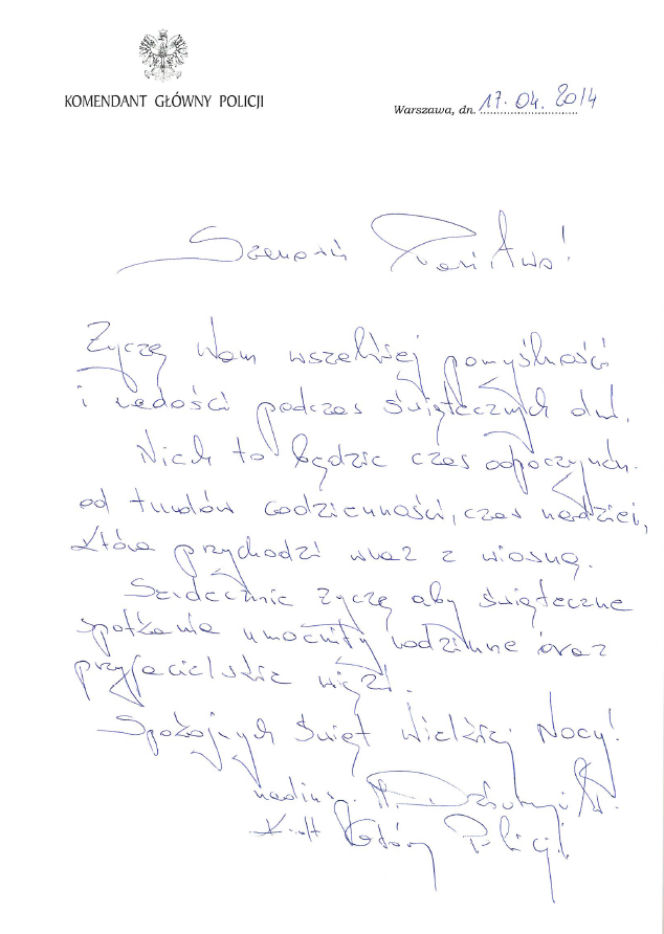 KOMENDANT GŁÓWNY POLICJI
Warszawa, dn. 17.04.2014
Szanowni Państwo!
Życzę Wam wszelkiej pomyślności
i radości podczas świątecznych dni.
Niech to będzie czas odpoczynku
od trudów codzienności, czas nadziei,
która przychodzi wraz z wiosną.
Serdecznie życzę aby świąteczne
spotkania umocniły rodzinne oraz
przyjacielskie więzi.
Spokojnych Świąt Wielkiej Nocy!
nadinsp.
K-dt Główny Policji